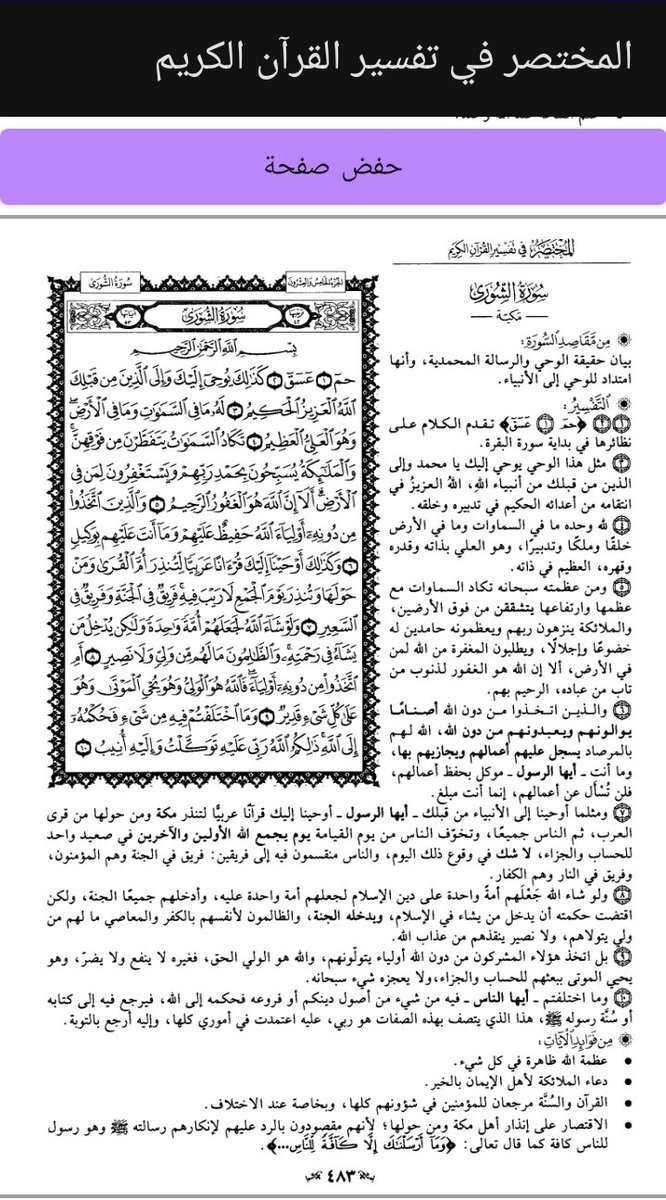 المختصر في تفسير القرآن الكريم
حفض صفحة
المختصر في تفسير القرآن الكريم
الجزء الخامس والعشرون
سورة الشورى
سورة الشورى
بسم الله الرحمن الرحيم
حمٓ ١ عٓسٓقٓ ٢ كَذَٰلِكَ يُوحِىٓ إِلَيْكَ وَإِلَى ٱلَّذِينَ مِن قَبْلِكَ
ٱللَّهُ ٱلْعَزِيزُ ٱلْحَكِيمُ ٣ لَهُۥ مَا فِى ٱلسَّمَٰوَٰتِ وَمَا فِى ٱلْأَرْضِۖ
وَهُوَ ٱلْعَلِىُّ ٱلْعَظِيمُ ٤ تَكَادُ ٱلسَّمَٰوَٰتُ يَتَفَطَّرْنَ مِن فَوْقِهِنَّۚ
وَٱلْمَلَٰٓئِكَةُ يُسَبِّحُونَ بِحَمْدِ رَبِّهِمْ وَيَسْتَغْفِرُونَ لِمَن فِى
ٱلْأَرْضِۗ أَلَآ إِنَّ ٱللَّهَ هُوَ ٱلْغَفُورُ ٱلرَّحِيمُ ٥ وَٱلَّذِينَ ٱتَّخَذُوا۟
مِن دُونِهِۦٓ أَوْلِيَآءَ ٱللَّهُ حَفِيظٌ عَلَيْهِمْ وَمَآ أَنتَ عَلَيْهِم بِوَكِيلٍ
٦ وَكَذَٰلِكَ أَوْحَيْنَآ إِلَيْكَ قُرْءَانًا عَرَبِيًّا لِّتُنذِرَ أُمَّ ٱلْقُرَىٰ وَمَنْ
حَوْلَهَا وَتُنذِرَ يَوْمَ ٱلْجَمْعِ لَا رَيْبَ فِيهِۚ فَرِيقٌ فِى ٱلْجَنَّةِ وَفَرِيقٌ فِى
ٱلسَّعِيرِ ٧ وَلَوْ شَآءَ ٱللَّهُ لَجَعَلَهُمْ أُمَّةً وَٰحِدَةً وَلَٰكِن يُدْخِلُ مَن
يَشَآءُ فِى رَحْمَتِهِۦۚ وَٱلظَّٰلِمُونَ مَا لَهُم مِّن وَلِىٍّ وَلَا نَصِيرٍ ٨ أَمِ
ٱتَّخَذُوا۟ مِن دُونِهِۦٓ أَوْلِيَآءَۖ فَٱللَّهُ هُوَ ٱلْوَلِىُّ وَهُوَ يُحْىِ ٱلْمَوْتَىٰ وَهُوَ
عَلَىٰ كُلِّ شَىْءٍ قَدِيرٌ ٩ وَمَا ٱخْتَلَفْتُمْ فِيهِ مِن شَىْءٍ فَحُكْمُهُۥٓ
إِلَى ٱللَّهِۚ ذَٰلِكُمُ ٱللَّهُ رَبِّى عَلَيْهِ تَوَكَّلْتُ وَإِلَيْهِ أُنِيبُ ١٠
سورة الشورى
- مكية -
من مقاصد السورة:
بيان حقيقة الوحي والرسالة المحمدية، وأنها
امتداد للوحي إلى الأنبياء.
التفسير:
١ ٢ ﴿حمٓ ١ عٓسٓقٓ﴾ تقدم الكلام على
نظائرها في بداية سورة البقرة.
٣ مثل هذا الوحي يوحي إليك يا محمد وإلى
الذين من قبلك من أنبياء الله، اللهُ العزيزُ في
انتقامه من أعدائه الحكيم في تدبيره وخلقه.
٤ لله وحده ما في السماوات وما في الأرض
خلقًا وملكًا وتدبيرًا، وهو العلي بذاته وقدره
وقهره، العظيم في ذاته.
٥ ومن عظمته سبحانه تكاد السماوات مع
عظمها وارتفاعها يتشققن من فوق الأرضين،
والملائكة ينزهون ربهم ويعظمونه حامدين له
خضوعًا وإجلالًا، ويطلبون المغفرة من الله لمن
في الأرض، ألا إن الله هو الغفور لذنوب من
تاب من عباده، الرحيم بهم.
٦ والذين اتخذوا من دون الله أصنامًا
يوالونهم ويعبدونهم من دون الله، الله لهم
بالمرصاد يسجل عليهم أعمالهم ويجازيهم بها،
وما أنت ـ أيها الرسول ـ موكل بحفظ أعمالهم،
فلن تُسأل عن أعمالهم، إنما أنت مبلغ.
٧ ومثلما أوحينا إلى الأنبياء من قبلك ـ أيها الرسول ـ أوحينا إليك قرآنًا عربيًّا لتنذر مكة ومن حولها من قرى
العرب، ثم الناس جميعًا، وتخوّف الناس من يوم القيامة يوم يجمع الله الأولين والآخرين في صعيد واحد
للحساب والجزاء، لا شك في وقوع ذلك اليوم، والناس منقسمون فيه إلى فريقين: فريق في الجنة وهم المؤمنون،
وفريق في النار وهم الكفار.
٨ ولو شاء الله جَعْلَهم أمةً واحدة على دين الإسلام لجعلهم أمة واحدة عليه، وأدخلهم جميعًا الجنة، ولكن
اقتضت حكمته أن يدخل من يشاء في الإسلام، ويدخله الجنة، والظالمون لأنفسهم بالكفر والمعاصي ما لهم من
ولي يتولاهم، ولا نصير ينقذهم من عذاب الله.
٩ بل اتخذ هؤلاء المشركون من دون الله أولياء يتولّونهم، والله هو الولي الحق، فغيره لا ينفع ولا يضرّ، وهو
يحيي الموتى ببعثهم للحساب والجزاء،ولا يعجزه شيء سبحانه.
١٠ وما اختلفتم ـ أيها الناس ـ فيه من شيء من أصول دينكم أو فروعه فحكمه إلى الله، فيرجع فيه إلى كتابه
أو سُنَّة رسوله ﷺ، هذا الذي يتصف بهذه الصفات هو ربي، عليه اعتمدت في أموري كلها، وإليه أرجع بالتوبة.
من فوائد الآيات:
• عظمة الله ظاهرة في كل شيء.
• دعاء الملائكة لأهل الإيمان بالخير.
• القرآن والسُّنَّة مرجعان للمؤمنين في شؤونهم كلها، وبخاصة عند الاختلاف.
• الاقتصار على إنذار أهل مكة ومن حولها؛ لأنهم مقصودون بالرد عليهم لإنكارهم رسالته ﷺ وهو رسول
للناس كافة كما قال تعالى: ﴿وَمَآ أَرْسَلْنَٰكَ إِلَّا كَآفَّةً لِّلنَّاسِ...﴾.
٤٨٣